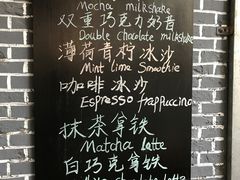 Mocha milkshake
双重巧克力奶昔
Double chocolate milkshake
薄荷青柠冰沙
Mint lime Smoothie
咖啡冰沙
Espresso frappuccino
抹茶拿铁
Matcha Latte
白巧克力拿铁
chocolate latte